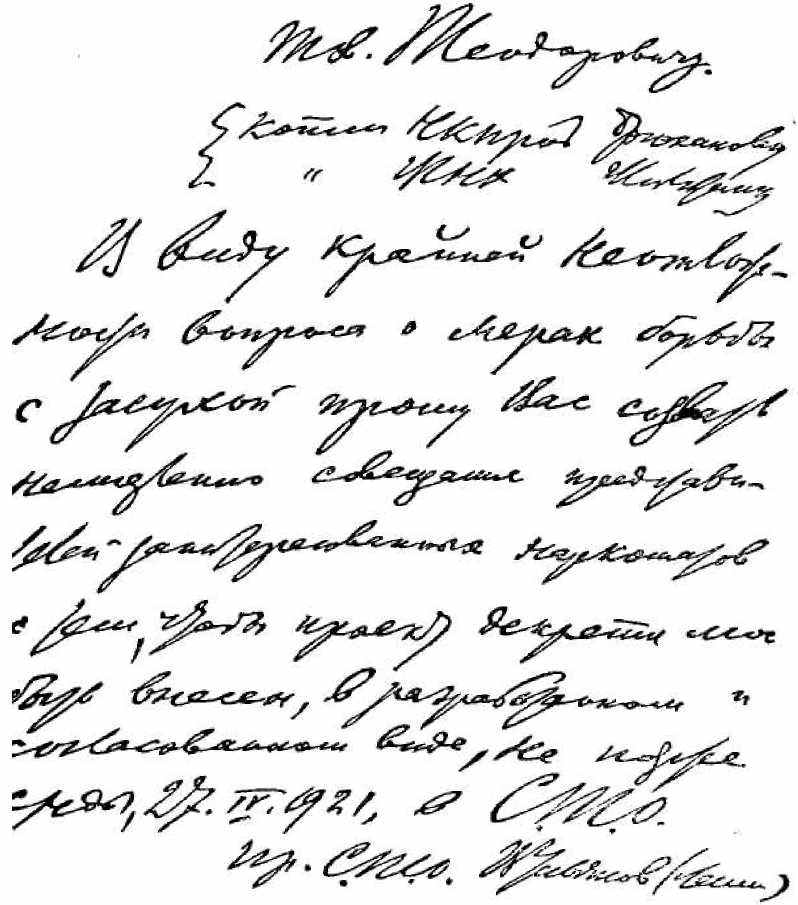 Тов. Теодорович.
{ копии НКпрод Брюханову
{ " ВСНХ
В виду крайней неотлож-
ности вопроса о мерах борьбы
с засухой прошу Вас созвать
немедленно совещание представи-
телей заинтересованных наркоматов
с тем, чтобы проект декрета мог
быть внесен, в разработанном и
согласованном виде, не позже
среды, 27. IV. 1921, в С.Т.О.
Пр. С.Т.О. В Ульянов (Ленин)